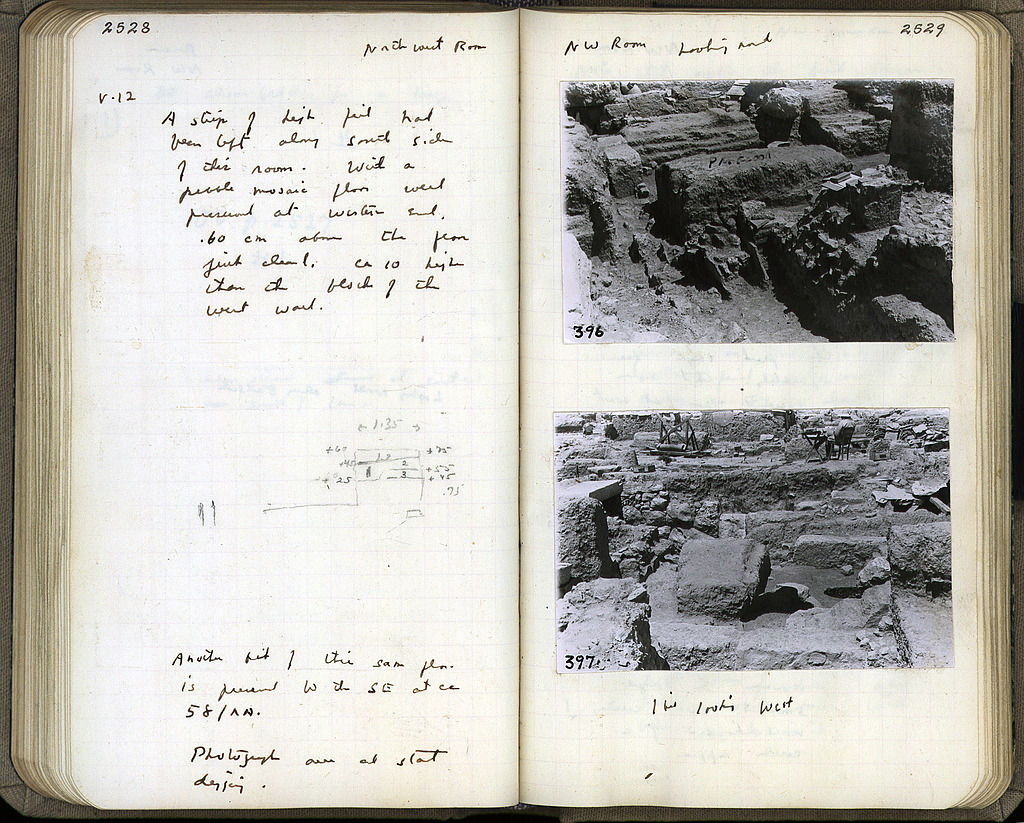 2528
North west Room
V.12
A strip of high fill had
been left along south side
of this room. With a
pebble mosaic floor well
present at western end.
.60 cm above the floor
just cleared. ca 10 higher
than the blocks of the
west wall.
1.35
+60 +75
+45 1.2 2
+55
3 +45
+.25
.75
Another bit of this same floor
is present to the SE at ca
58/ΛΔ.
Photograph
digging.
2529
NW Room Looking
396
397.
looking West